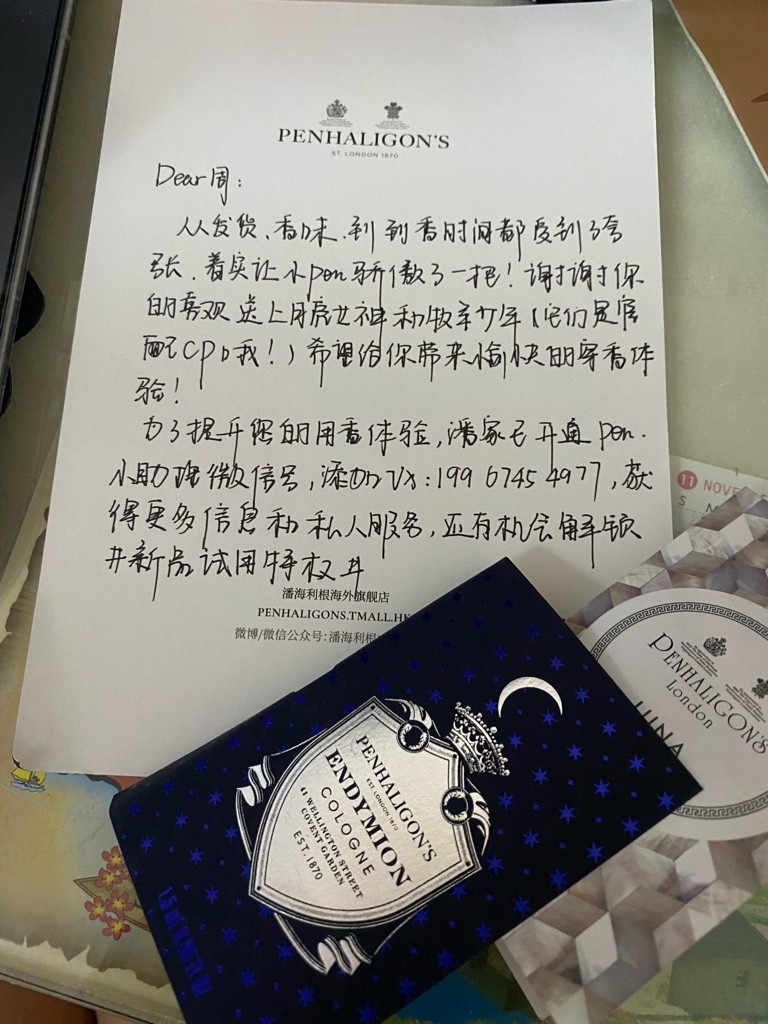 PENHALIGON'S
EST. LONDON 1870
Dear周:
从发货、香味、到到香时间都受到了夸
张、着实让小pen骄傲了一把！谢谢你
的喜欢 送上月辰女神和牧羊少年（它们是官
配CP 我！）希望给你带来愉快的穿香体
验！
为了提升您的用香体验，潘家已开通pen.
小助理微信号，添加Vx：199 6745 4977，获
得更多信息和私人服务，还有机会解锁
#新品试用特权#
潘海利根海外旗舰店
PENHALIGONS.TMALL.HK
微博/微信公众号:潘海利根
11 NOVE
S M
PENHALIGON'S
London
LUNA
PENHALIGON'S
EST. LONDON 1870
ENDYMION
COLOGNE
41 WELLINGTON STREET
COVENT GARDEN
EST. 1870